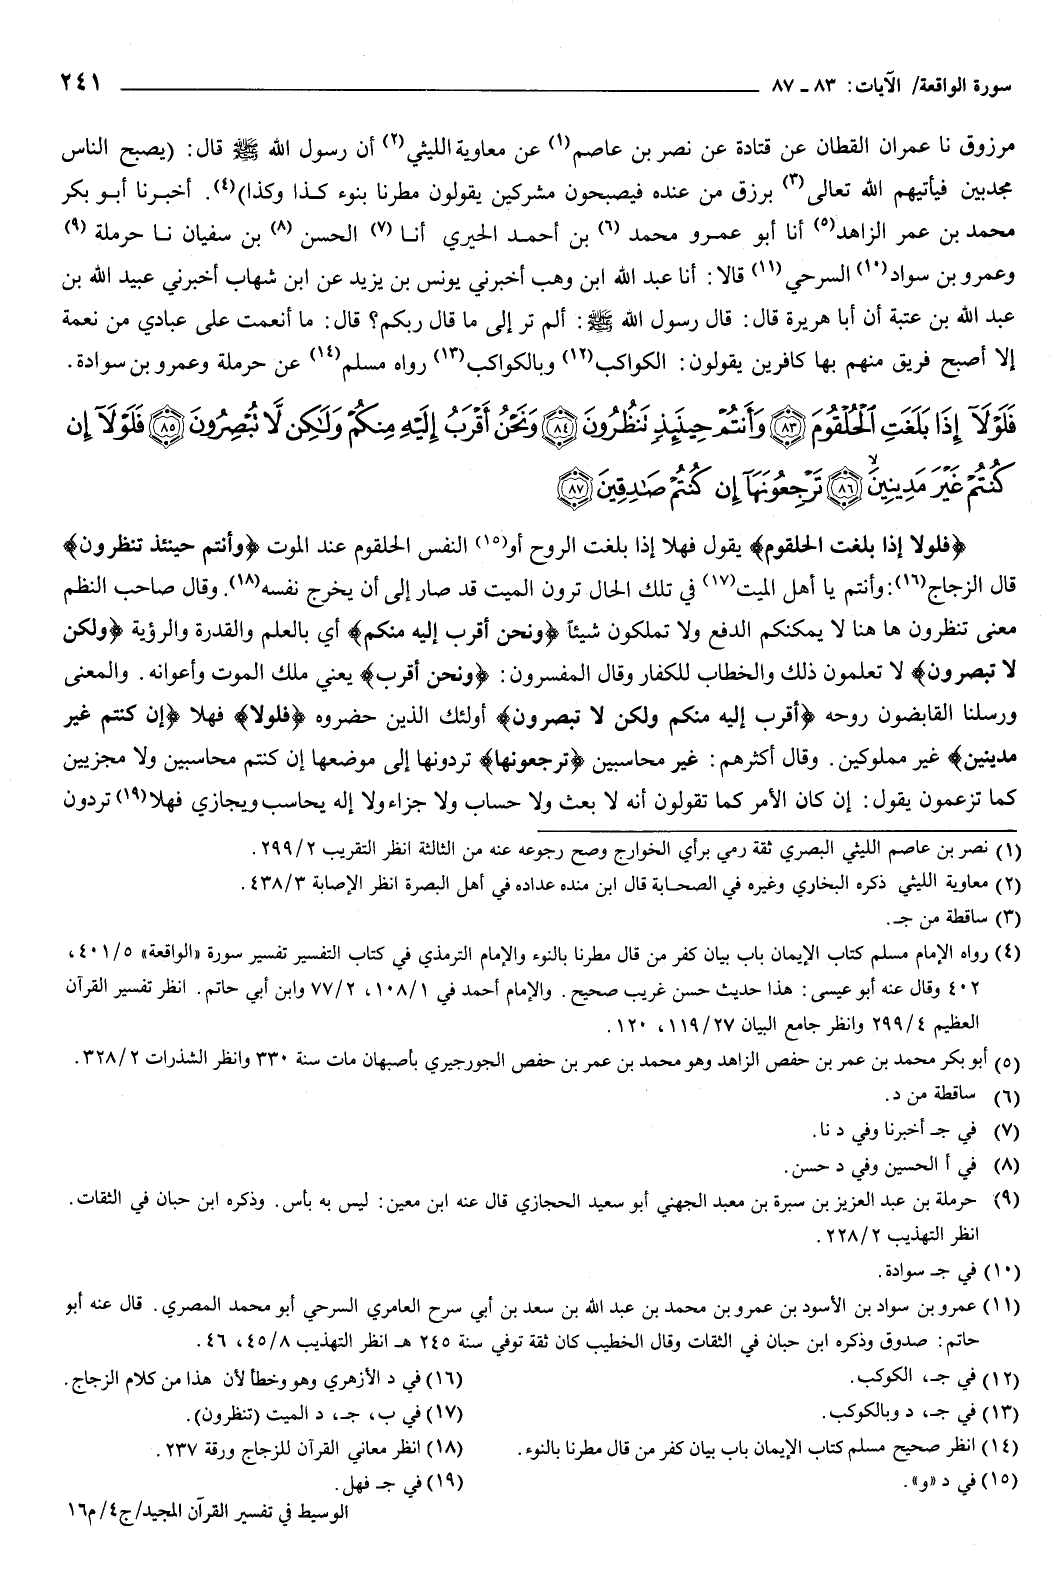 سورة الواقعة/ الآيات: ٨٣ ـ ٨٧ ٢٤١
مرزوق نا عمران القطان عن قتادة عن نصر بن عاصم(١) عن معاوية الليثي(٢) أن رسول الله ﷺ قال: (يصبح الناس
مجدبين فيأتيهم الله تعالى(٣) برزق من عنده فيصبحون مشركين يقولون مطرنا بنوء كذا وكذا)(٤). أخبرنا أبو بكر
محمد بن عمر الزاهد(٥) أنا أبو عمرو محمد (٦) بن أحمد الحيري أنا(٧) الحسن (٨) بن سفيان نا حرملة (٩)
وعمرو بن سواد(١٠) السرحي (١١) قالا: أنا عبد الله ابن وهب أخبرني يونس بن يزيد عن ابن شهاب أخبرني عبيد الله بن
عبد الله بن عتبة أن أبا هريرة قال: قال رسول الله ﷺ: ألم تر إلى ما قال ربكم؟ قال: ما أنعمت على عبادي من نعمة
إلا أصبح فريق منهم بها كافرين يقولون: الكواكب(١٢) وبالكواكب(١٣) رواه مسلم(١٤) عن حرملة وعمرو بن سوادة.
فَلَوْلَآ إِذَا بَلَغَتِ ٱلْحُلْقُومَ ۝٨٣ وَأَنتُمْ حِينَئِذٍ تَنظُرُونَ ۝٨٤ وَنَحْنُ أَقْرَبُ إِلَيْهِ مِنكُمْ وَلَٰكِن لَّا تُبْصِرُونَ ۝٨٥ فَلَوْلَآ إِن
كُنتُمْ غَيْرَ مَدِينِينَ ۝٨٦ تَرْجِعُونَهَآ إِن كُنتُمْ صَٰدِقِينَ ۝٨٧
﴿فلولا إذا بلغت الحلقوم﴾ يقول فهلا إذا بلغت الروح أو(١٥) النفس الحلقوم عند الموت ﴿وأنتم حينئذ تنظرون﴾
قال الزجاج(١٦): وأنتم يا أهل الميت(١٧) في تلك الحال ترون الميت قد صار إلى أن يخرج نفسه(١٨). وقال صاحب النظم
معنى تنظرون ها هنا لا يمكنكم الدفع ولا تملكون شيئاً ﴿ونحن أقرب إليه منكم﴾ أي بالعلم والقدرة والرؤية ﴿ولكن
لا تبصرون﴾ لا تعلمون ذلك والخطاب للكفار وقال المفسرون: ﴿ونحن أقرب﴾ يعني ملك الموت وأعوانه. والمعنى
ورسلنا القابضون روحه ﴿أقرب إليه منكم ولكن لا تبصرون﴾ أولئك الذين حضروه ﴿فلولا﴾ فهلا ﴿إن كنتم غير
مدينين﴾ غير مملوكين. وقال أكثرهم: غير محاسبين ﴿ترجعونها﴾ تردونها إلى موضعها إن كنتم محاسبين ولا مجزيين
كما تزعمون يقول: إن كان الأمر كما تقولون أنه لا بعث ولا حساب ولا جزاء ولا إله يحاسب ويجازي فهلا(١٩) تردون
(١) نصر بن عاصم الليثي البصري ثقة رمي برأي الخوارج وصح رجوعه عنه من الثالثة انظر التقريب ٢/ ٢٩٩.
(٢) معاوية الليثي ذكره البخاري وغيره في الصحابة قال ابن منده عداده في أهل البصرة انظر الإصابة ٣/ ٤٣٨.
(٣) ساقطة من جـ.
(٤) رواه الإمام مسلم كتاب الإيمان باب بيان كفر من قال مطرنا بالنوء والإمام الترمذي في كتاب التفسير تفسير سورة «الواقعة» ٥/ ٤٠١،
٤٠٢ وقال عنه أبو عيسى: هذا حديث حسن غريب صحيح. والإمام أحمد في ١/ ١٠٨، ٢/ ٧٧ وابن أبي حاتم. انظر تفسير القرآن
العظيم ٤/ ٢٩٩ وانظر جامع البيان ٢٧/ ١١٩، ١٢٠.
(٥) أبو بكر محمد بن عمر بن حفص الزاهد وهو محمد بن عمر بن حفص الجورجيري بأصبهان مات سنة ٣٣٠ وانظر الشذرات ٢/ ٣٢٨.
(٦) ساقطة من د.
(٧) في جـ أخبرنا وفي د نا.
(٨) في أ الحسين وفي د حسن.
(٩) حرملة بن عبد العزيز بن سبرة بن معبد الجهني أبو سعيد الحجازي قال عنه ابن معين: ليس به بأس. وذكره ابن حبان في الثقات.
انظر التهذيب ٢/ ٢٢٨.
(١٠) في جـ سوادة.
(١١) عمرو بن سواد بن الأسود بن عمرو بن محمد بن عبد الله بن سعد بن أبي سرح العامري السرحي أبو محمد المصري. قال عنه أبو
حاتم: صدوق وذكره ابن حبان في الثقات وقال الخطيب كان ثقة توفي سنة ٢٤٥ هـ انظر التهذيب ٨/ ٤٥، ٤٦.
(١٢) في جـ، الكوكب.
(١٣) في جـ، د وبالكوكب.
(١٤) انظر صحيح مسلم كتاب الإيمان باب بيان كفر من قال مطرنا بالنوء.
(١٥) في د «و».
(١٦) في د الأزهري وهو وخطأ لأن هذا من كلام الزجاج.
(١٧) في ب، جـ، د الميت (تنظرون).
(١٨) انظر معاني القرآن للزجاج ورقة ٢٣٧.
(١٩) في جـ فهل.
الوسيط في تفسير القرآن المجيد/ ج٤/ م١٦